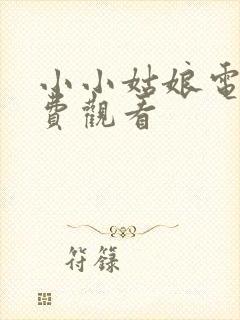 小小姑娘電
費觀看
符籙